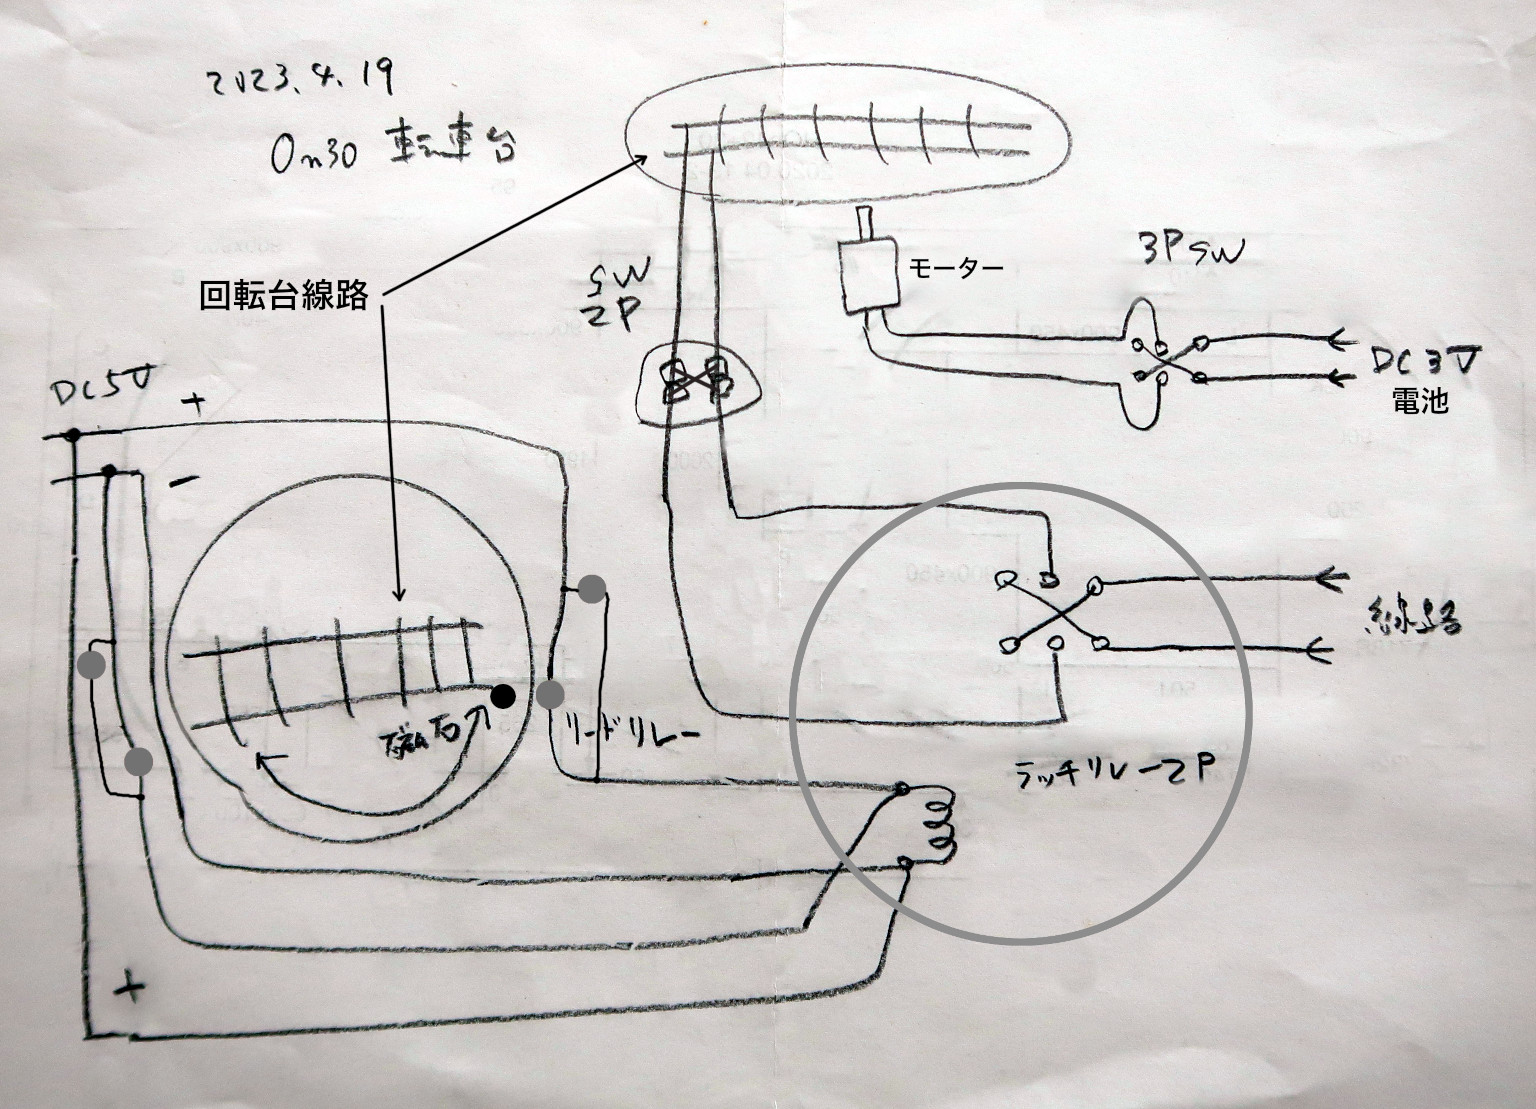 2023.4.19
On30 転車台
回転台線路
SW
2P
モーター
3P SW
DC3V
電池
DC5V
+
-
磁石
リードリレー
線路
ラッチリレー2P
+